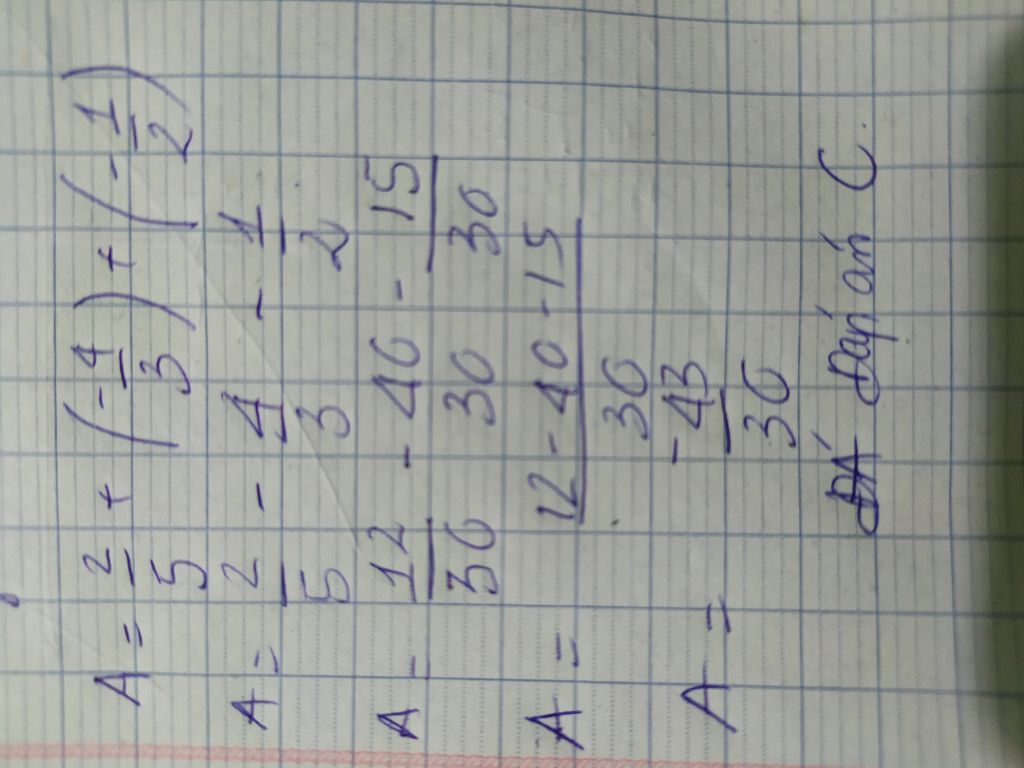 A = 2/5 + (-4/3) + (-1/2)
A = 2/5 - 4/3 - 1/2
A = 12/30 - 40/30 - 15/30
A = 12 - 40 - 15/30
A = -43/30
ĐÁ Đáp án C.